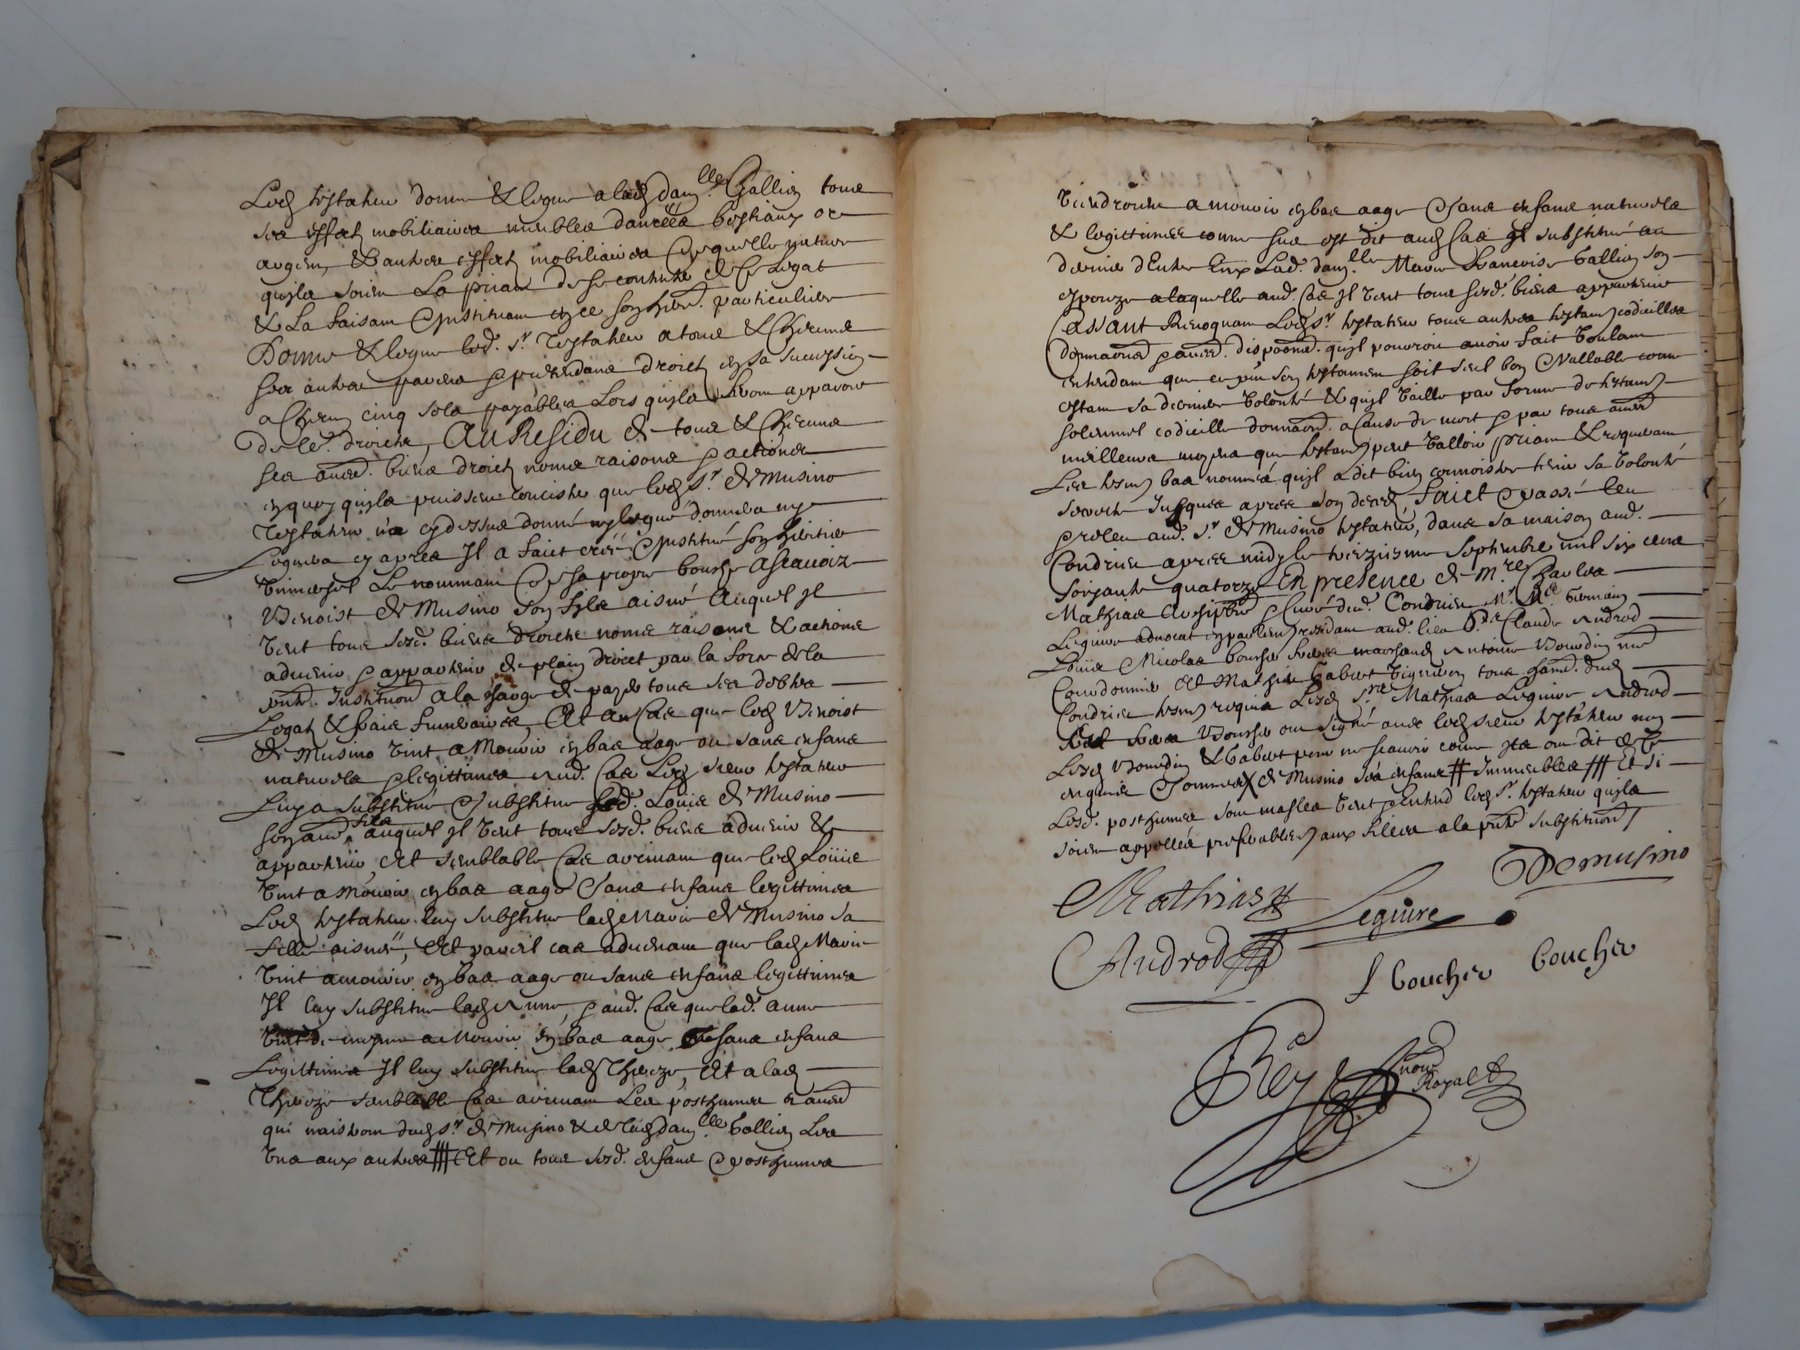 Led testateur donne & legue a lad dam.lle Gallien tous
ses effects mobiliaires meubles danrées bestiaux or
argent, & autres effects mobiliaires de quelle nature
quils soient La priant de se contenter de ce Legat
& La faisant & instituant en ce son heri.re particuliere
Donne & legue led. sr Testateur a tous & chacuns
ses autres parens & pretendans droict en sa succession
a chacun cinq sols payables Lors quils feront apparoir
de le.s droicts, Au Residu de tous & chacuns
ses autres biens droicts noms raisons & actions
en quoy quils puissent concister que led sr de Musino
Testateur n'a cy dessus donné ny legué donnera ny
Leguera cy apres Il a faict creé & institué son heritier
universel Le nommant de sa propre bouche Ascavoir
Benoist de Musino son fils aisné Auquel Il
veut tous sesd. biens droicts noms raisons & actions
advenir & appartenir de plain droict par la force de la
pnte. Institution a la charge de payer tous ses debtes
Legats & frais funeraires, Et au Cas que led Benoist
de Musino vint a Mourir en bas aage ou sans enfans
naturels & legittimes aud. Cas Led sieur testateur
Luy a substitué & substitue led. Louis de Musino
son autre fils auquel Il veut tous sesd. biens advenir &
appartenir Et semblable Cas arrivant que led Louis
vint a Mourir en bas aage & sans enfans legittimes
Led testateur luy substitue lad Marie de Musino sa
fille aisnée, Et pareil cas advenant que lad Marie
vint a mourir en bas aage ou sans enfans legittimes
Il luy substitue lad Anne, & aud. Cas que lad. anne
vint a Mourir en bas aage & sans enfans
Legittimes Il luy substitue lad Thereze, Et a lad
Thereze semblable Cas arrivant Les posthumes &
qui naistront dud sr. de Musino & de lad dam.lle Gallien Les
uns aux autres Et ou tous sesd. enfans & posthumes
viendroient a mourir en bas aage & sans enfans naturels
& legittimes comme sus est dit aud Cas Il substitue au
dernier d'Entre Eux Lad. dam.lle Marie Francoise Gallien son
espouze a laquelle aud. Cas Il veut tous sesd. biens appartenir
Cassant & Revoquant Led sr testateur tous autres testam. codicilles
donnaons & autres dispaons. quil pourroit avoir fait voulant
entendant que ce pnt son testament soit seul bon & vallable comme
estant sa derniere volonté & quil vaille par forme de testam.
solennel codicille donnaon. a cause de mort & par tous autres
meilleurs moyens que testam. peut valloir priant & requerant
Les tesm. bas nommés quil a dit bien connoistre tenir sa volonté
secrete Jusques apres son deced, faict & passé leu
& releu aud. sr de Musino testateur, dans sa maison aud.
Condrieu apres midy le treiziesme Septembre mil six cens
soixante quatorze En presence de Mre Charles
Mathias & Curé dud. Condrieu Mr Me Germain
Leguire advocat en parlem. residant aud. lieu Claude Androd
Louis Nicolas boucher marchand Antoine Bourdin me
Courdonnier Et Gabert Vigneron tous habit. dud
Condrieu tesm. requis Lesd srs Mathias Leguire Androd
& Boucher ont signé avec led sieur testateur non
Lesd Bourdin & Gabert pour ne scavoir comme Ils ont dit de ce
enquis & sommes de Musino ses enfans # Immeubles Et si
Lesd. posthumes sont masles veut & entend led sr. testateur quils
soient appellés preferablem. aux filles a la pnte substitution
Demusino
Mathias
Leguire
Androd
f Boucher
boucher
Rey
Royal